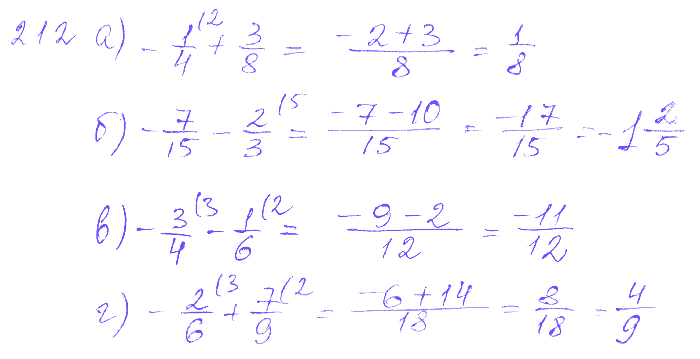 212 а) -1/4 (2 + 3/8 = (-2+3)/8 = 1/8
б) -7/15 - 2/3 (5 = (-7-10)/15 = -17/15 = -1 2/5
в) -3/4 (3 - 1/6 (2 = (-9-2)/12 = -11/12
г) -2/6 (3 + 7/9 (2 = (-6+14)/18 = 8/18 - 4/9